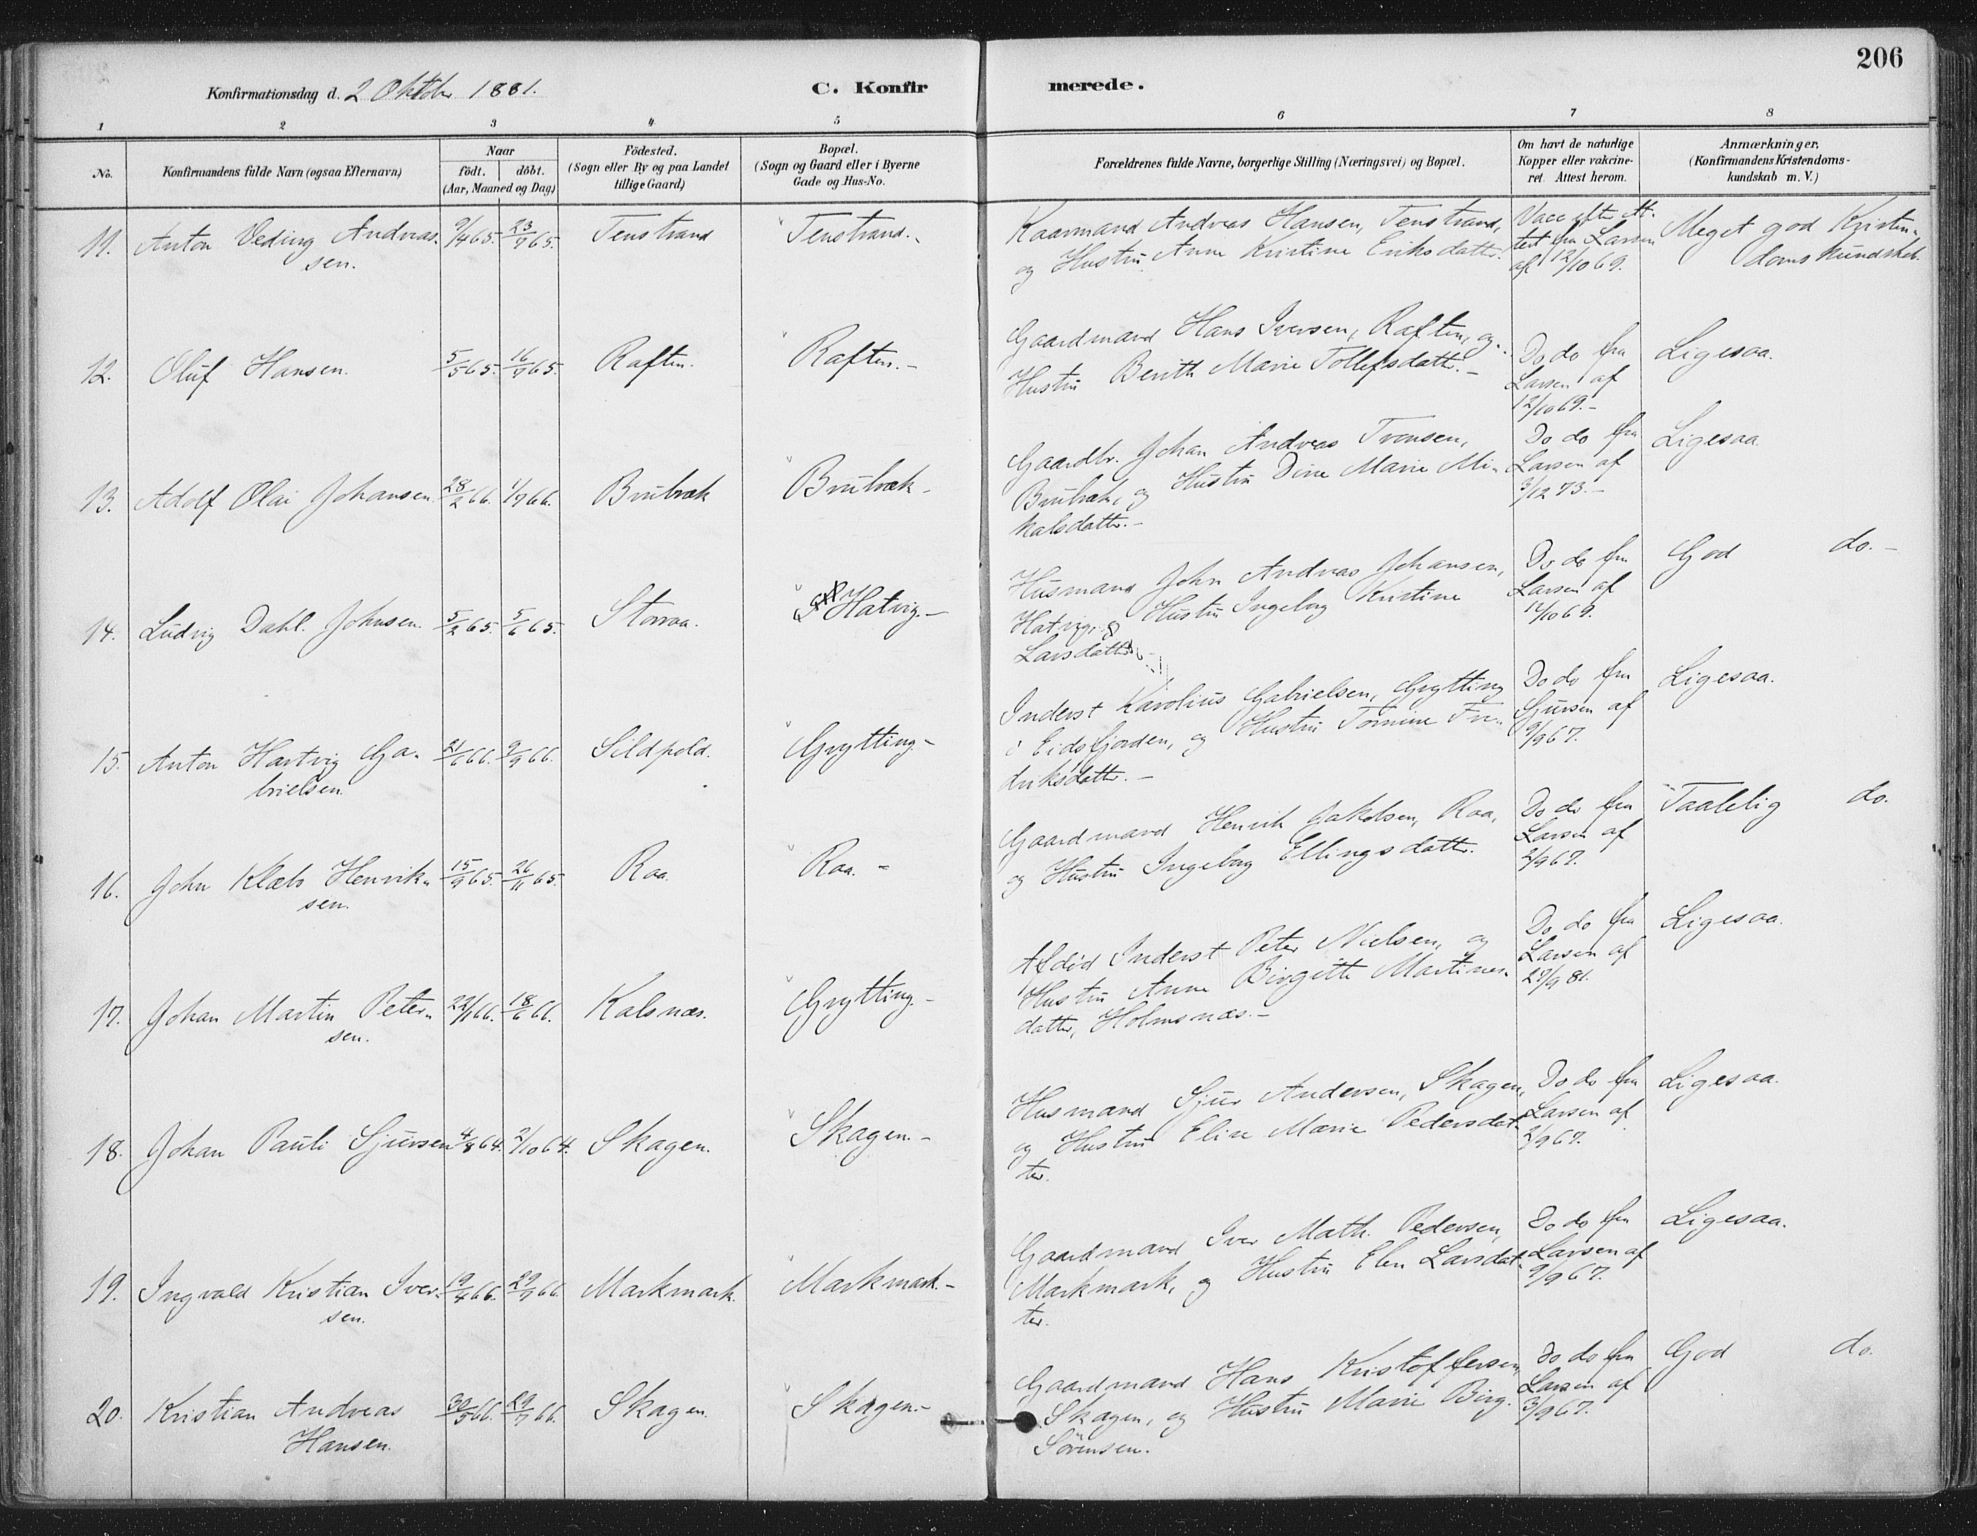 206
Konfirmationsdag d. 2 Oktober 1881.
C. Konfirmerede.
1 2 3 4 5 6 7 8
No.
Konfirmandens fulde Navn (ogsaa Efternavn)
Naar
födt. döbt.
(Aar, Maaned og Dag)
Födested.
(Sogn eller By og paa Landet
tillige Gaard)
Bopæl.
(Sogn og Gaard eller i Byerne
Gade og Hus-No.
Forældrenes fulde Navne, borgerlige Stilling (Næringsvei) og Bopæl.
Om havt de naturlige
Kopper eller vakcine-
ret. Attest herom.
Anmærkninger.
(Konfirmandens Kristendoms-
kundskab m. V.)
11. Anton Veding Andreas-
sen.
9/4 65. 23/7 65.
Tenstrand
Tenstrand.-
Kaarmand Andreas Hansen, Tenstrand,
og Hustru Anne Kristine Eriksdatter.
Vacc. efter At-
test fra Larsen
af 12/10 69.
Meget god Kristen-
doms kundskab.
12. Oluf Hansen.
5/5 65. 16/7 65.
Raften.
Raften.-
Gaardmand Hans Iversen, Raften, og
Hustru Berith Marie Tollefsdatter.-
Do do fra
Larsen af
12/10 69.-
Ligesaa.
13. Adolf Olai Johansen.
28/2 66. 1/7 66.
Brubræk
Brubræk-
Gaardbr. Johan Andreas Tronsen,
Brubræk, og Hustru Dine Marie Mi-
kalsdatter.-
Do do fra
Larsen af
3/12 73.-
Ligesaa
14. Ludvig Dahl. Johnsen.
5/2 65. 5/6 65.
Storraa.
Hatvig.-
Husmand John Andreas Johansen,
Hatvig, & Hustru Ingeborg Kristine
Larsdatter.
Do do fra
Larsen af
12/10 69.
God do.-
15. Anton Hartvig Ga-
brielsen.
21/6 66. 2/9 66.
Sildpold.
Grytting-
Inderst Karolius Gabrielsen, Grytting
i Eidsfjorden, og Hustru Tomine Fre-
driksdatter.-
Do do fra
Sjursen af
9/9 67.
Ligesaa.
16. John Klæbo Henrik-
sen.
15/9 65. 26/11 65.
Raa.
Raa.-
Gaardmand Henrik Jakobsen, Raa,
og Hustru Ingeborg Ellingsdatter.
Do do fra
Larsen af
2/9 67.
Taalelig do.
17. Johan Martin Peter-
sen.
22/1 66. 18/6 66.
Kalsnæs.
Grytting-
Afdød Inderst Peter Nielsen, og
Hustru Anne Birgitte Martines-
datter, Holmsnæs.-
Do do fra
Larsen af
29/9 81.
Ligesaa.
18. Johan Pauli Sjursen
4/8 64. 2/10 64.
Skagen.
Skagen.-
Husmand Sjur Andersen, Skagen,
og Hustru Elise Marie Pedersdat-
ter.
Do do fra
Larsen af
2/9 67.
Ligesaa.
19. Ingvald Kristian Iver-
sen.
19/4 66. 29/7 66.
Markmark.
Markmark.-
Gaardmand Iver Math. Pedersen,
Markmark, og Hustru Elen Larsdat-
ter.
Do do fra
Larsen af
9/9 67.
Ligesaa.
20. Kristian Andreas
Hansen.
30/5 66. 29/7 66.
Skagen.
Skagen.-
Gaardmand Hans Kristoffersen,
Skagen, og Hustru Marie Birg.
Sörensen.
Do do fra
Larsen af
3/9 67.
God do.